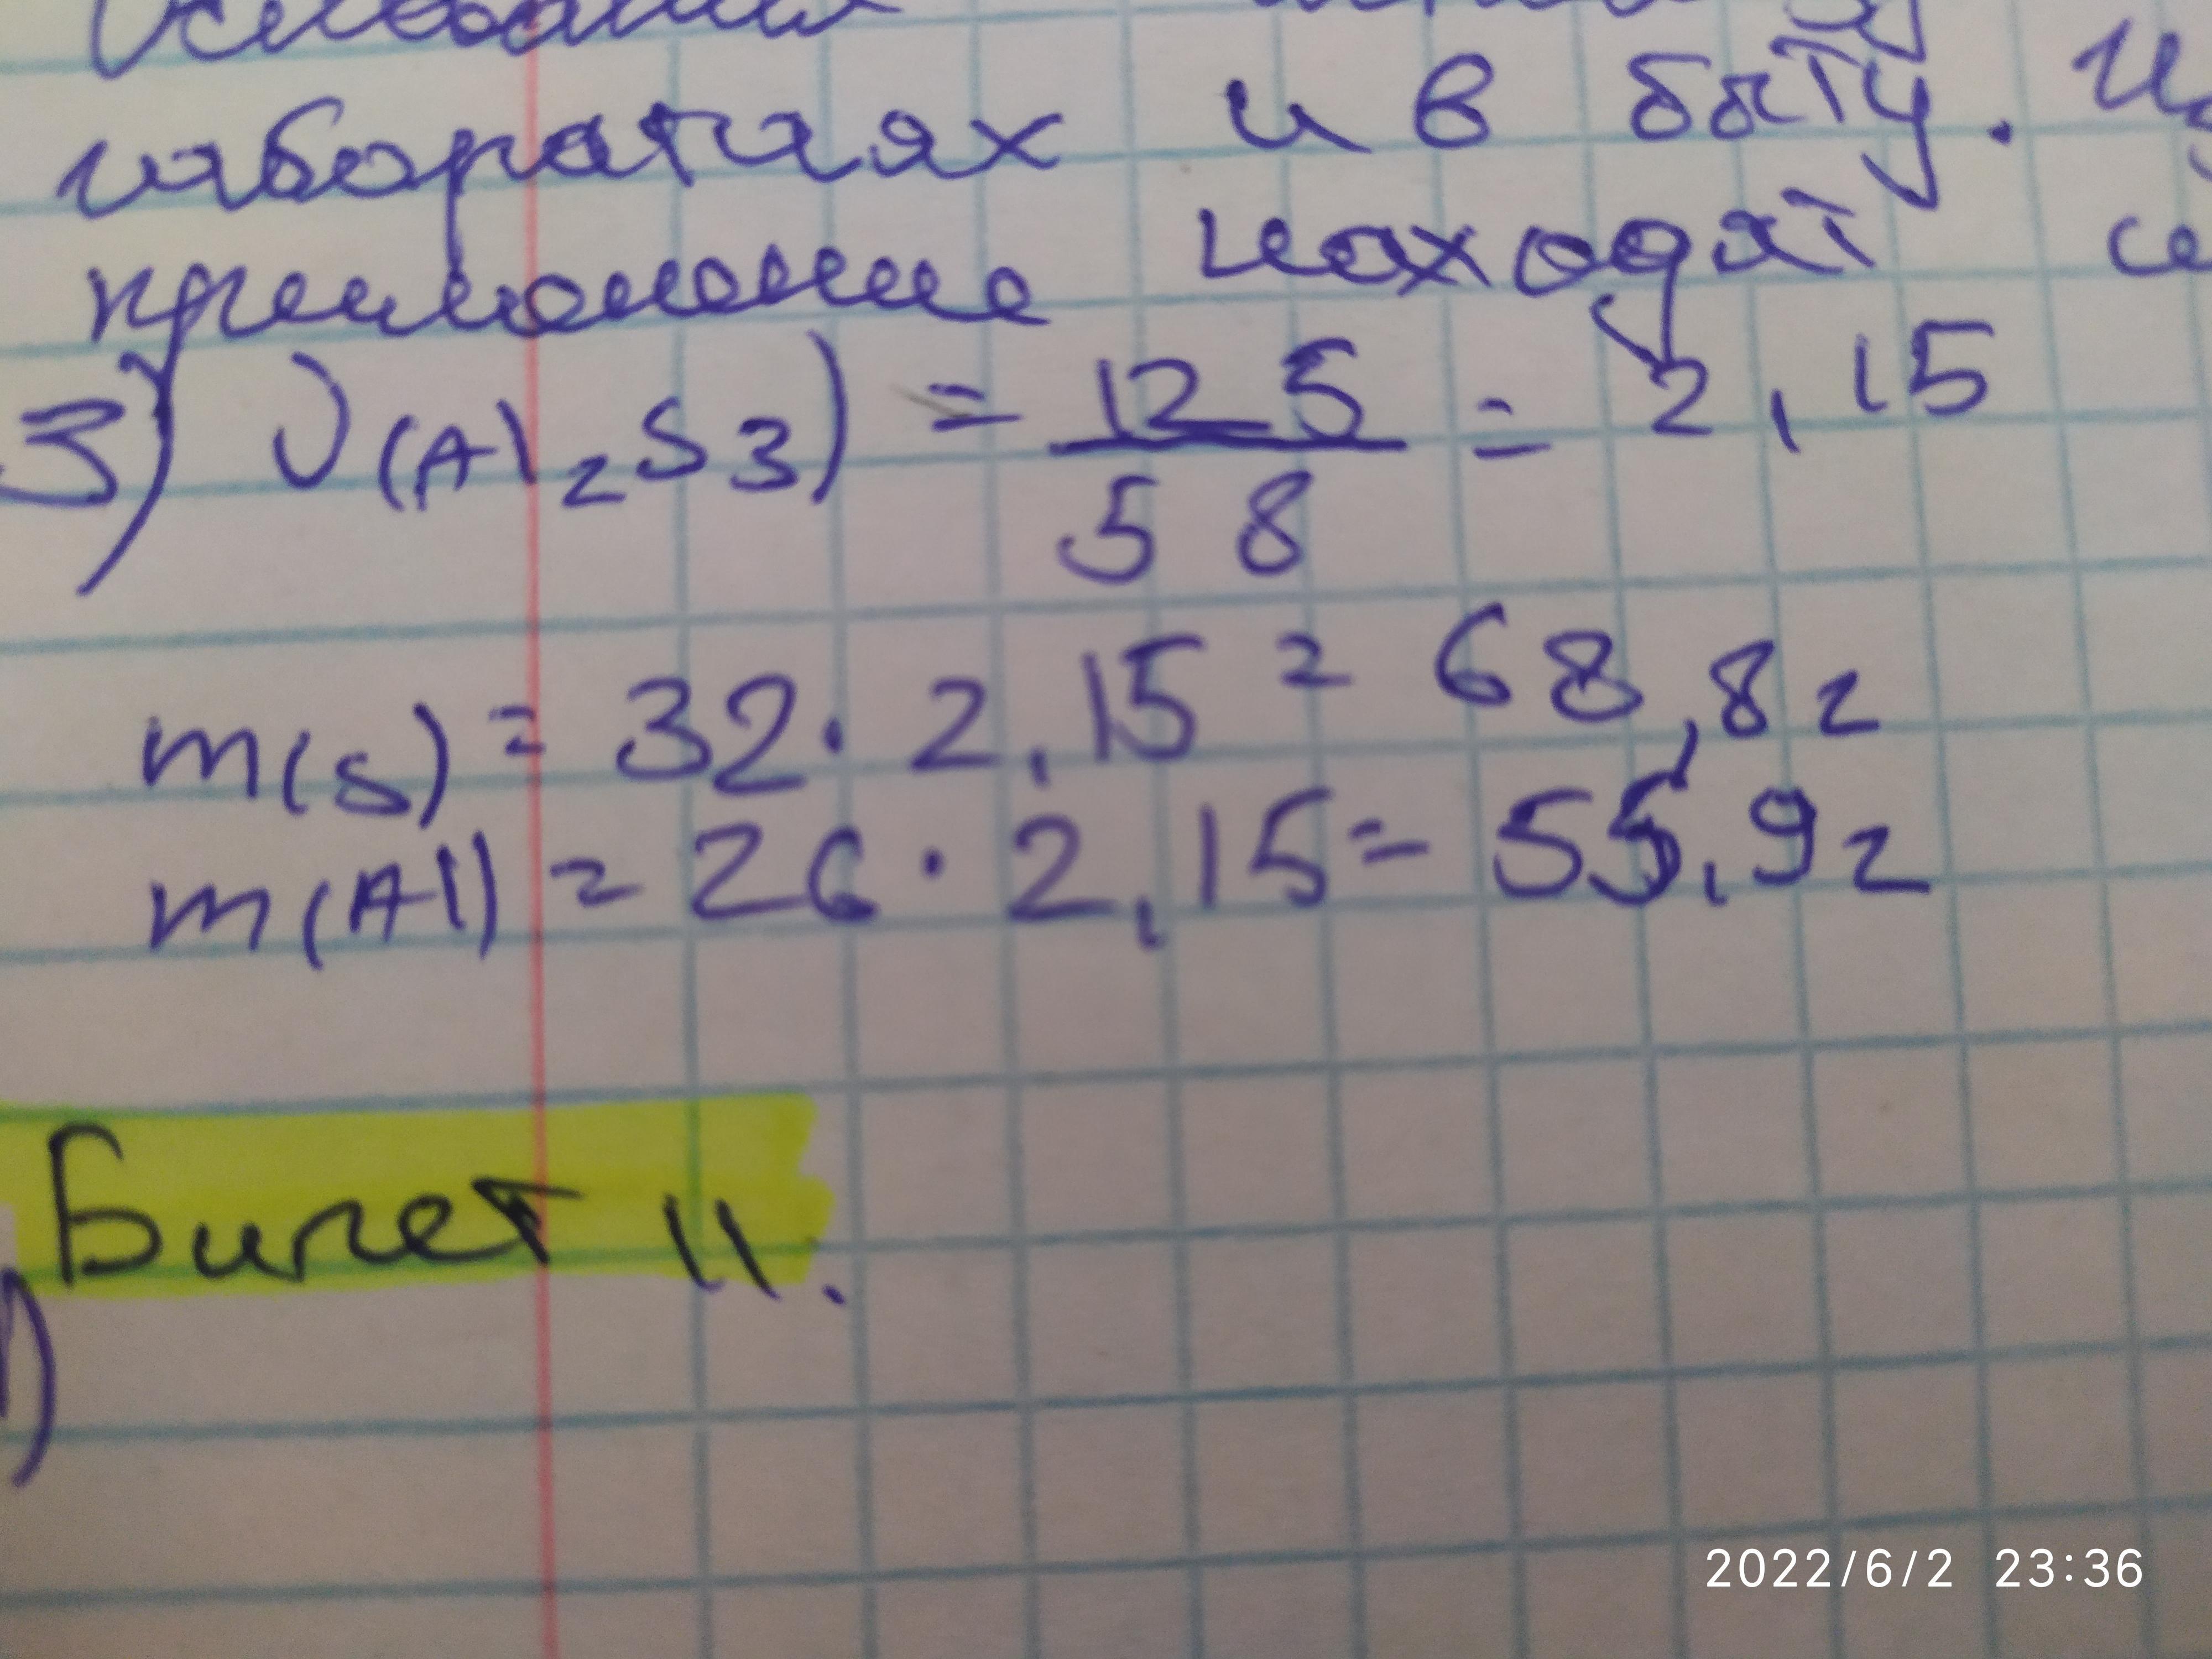 лаборатиях и в быту. Из
применение находят
3) ν(Al2S3) = 125/58 = 2,15
m(s) = 32 · 2,15 = 68,8г
m(Al) = 26 · 2,15 = 55,9г
Билет 11.
1)
2022/6/2 23:36